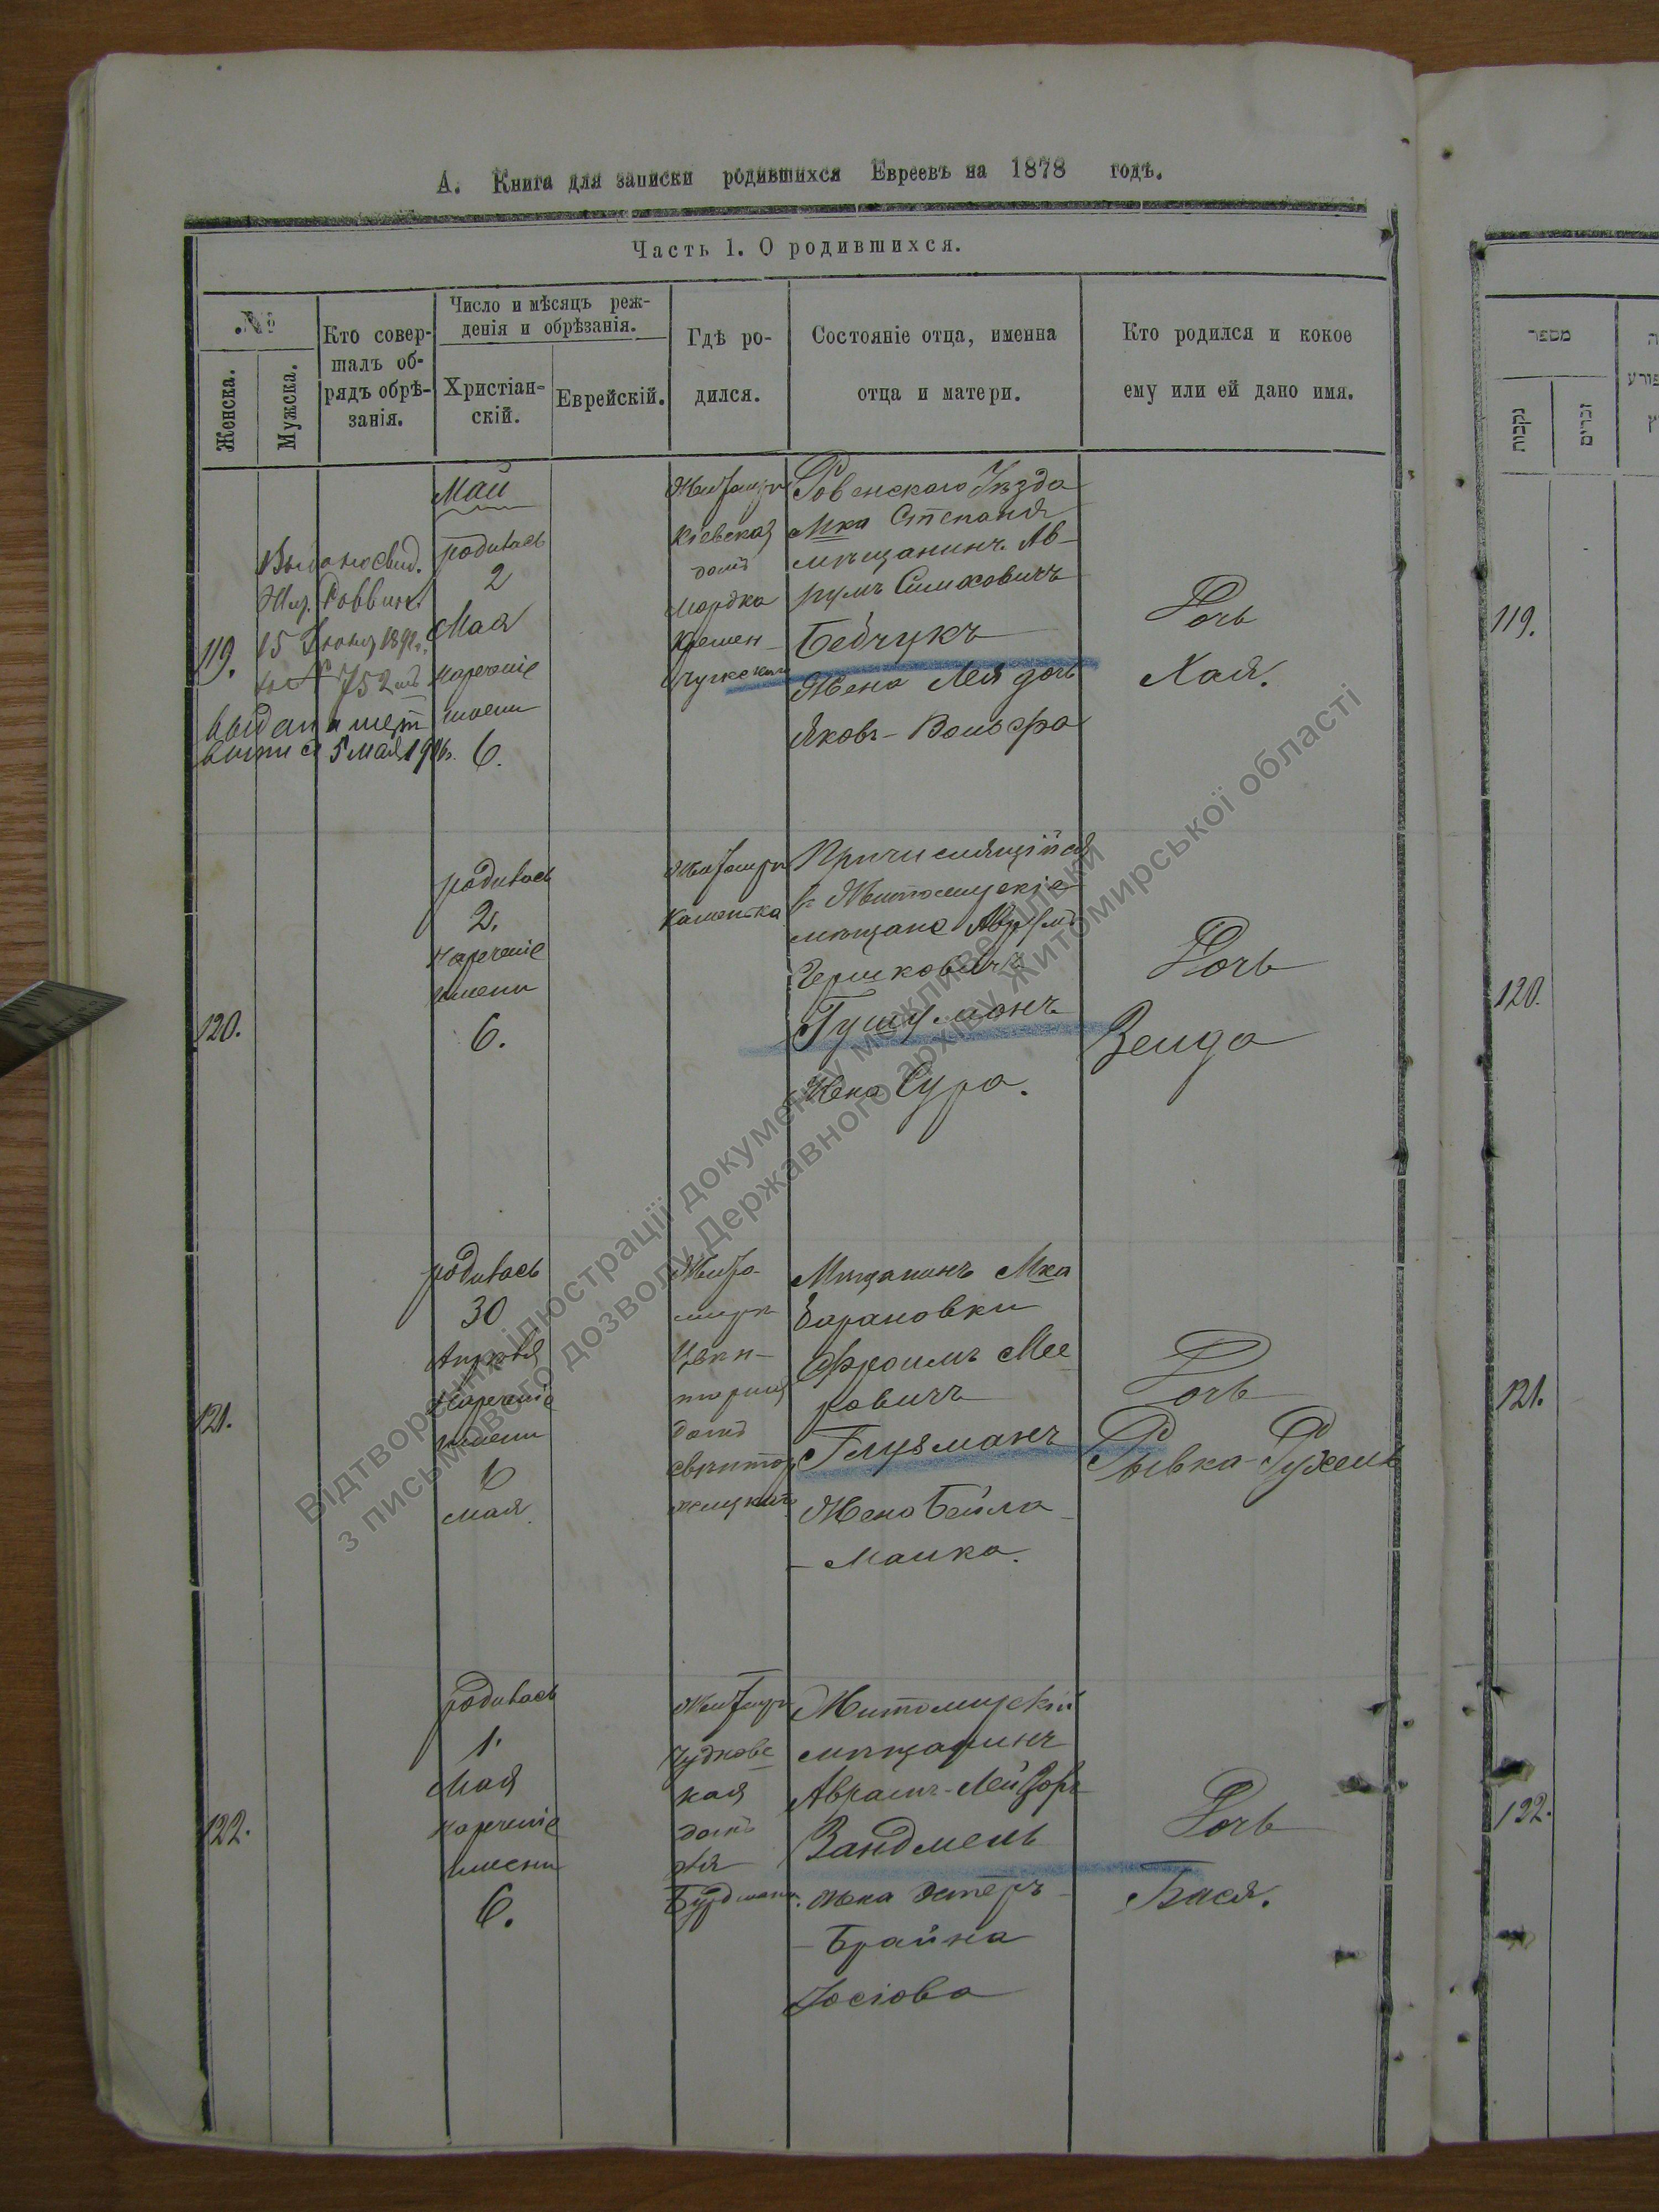 А. Книга для записки родившихся Евреевъ на 1878 годъ.
Часть 1. О родившихся.
№
Женска.
Мужска.
Кто совер-
шалъ об-
рядъ обрѣ-
занія.
Число и мѣсяцъ рож-
денія и обрѣзанія.
Христіан-
скій.
Еврейскій.
Гдѣ ро-
дился.
Состояніе отца, именна
отца и матери.
Кто родился и кокое
ему или ей дано имя.
119.
Выдано свид.
Жит. Раввин.
15
№ 752
5 мая 1906 г.
Май
родилась
2
Мая
нареченіе
имени
6.
Житомиръ
Кіевская
домъ
Мордка
Кремен-
чугскаго
Ровенскаго Уѣзда
Мка Степаня
мѣщанинъ Ав-
румъ Симховичъ
Бейчукъ
Жена Лея дочь
Яковъ-Вольфа
Дочь
Хая.
120.
родилась
2.
нареченіе
имени
6.
Житомиръ
Каменка
Причисляющійся
в Житомирскіе
мѣщане Аврумъ
Гершковичъ
Жена Сура.
Дочь
Зелда
121.
родилась
30
Апрѣля
нареченіе
имени
6
мая
Жито-
миръ
домъ
Мѣщанинъ Мка
Барановки
Фроимъ Мее
ровичъ
Глузманъ
Жена Бейла-
-Малка.
Дочь
Рывка-Рухель
122.
родилась
1.
Мая
нареченіе
имени
6.
Житомиръ
Чудновс
кая
домъ
Житомирскій
мѣщанинъ
Аврамъ-Лейзоръ
Зандмель
жена Эстеръ-
-Брайна
Іосіова
Дочь
Бася.
מספר
נקבות
זכרים
119.
120.
121.
122.
Відтворення ілюстрації документу можливе тільки
з письмового дозволу Державного архіву Житомирської області